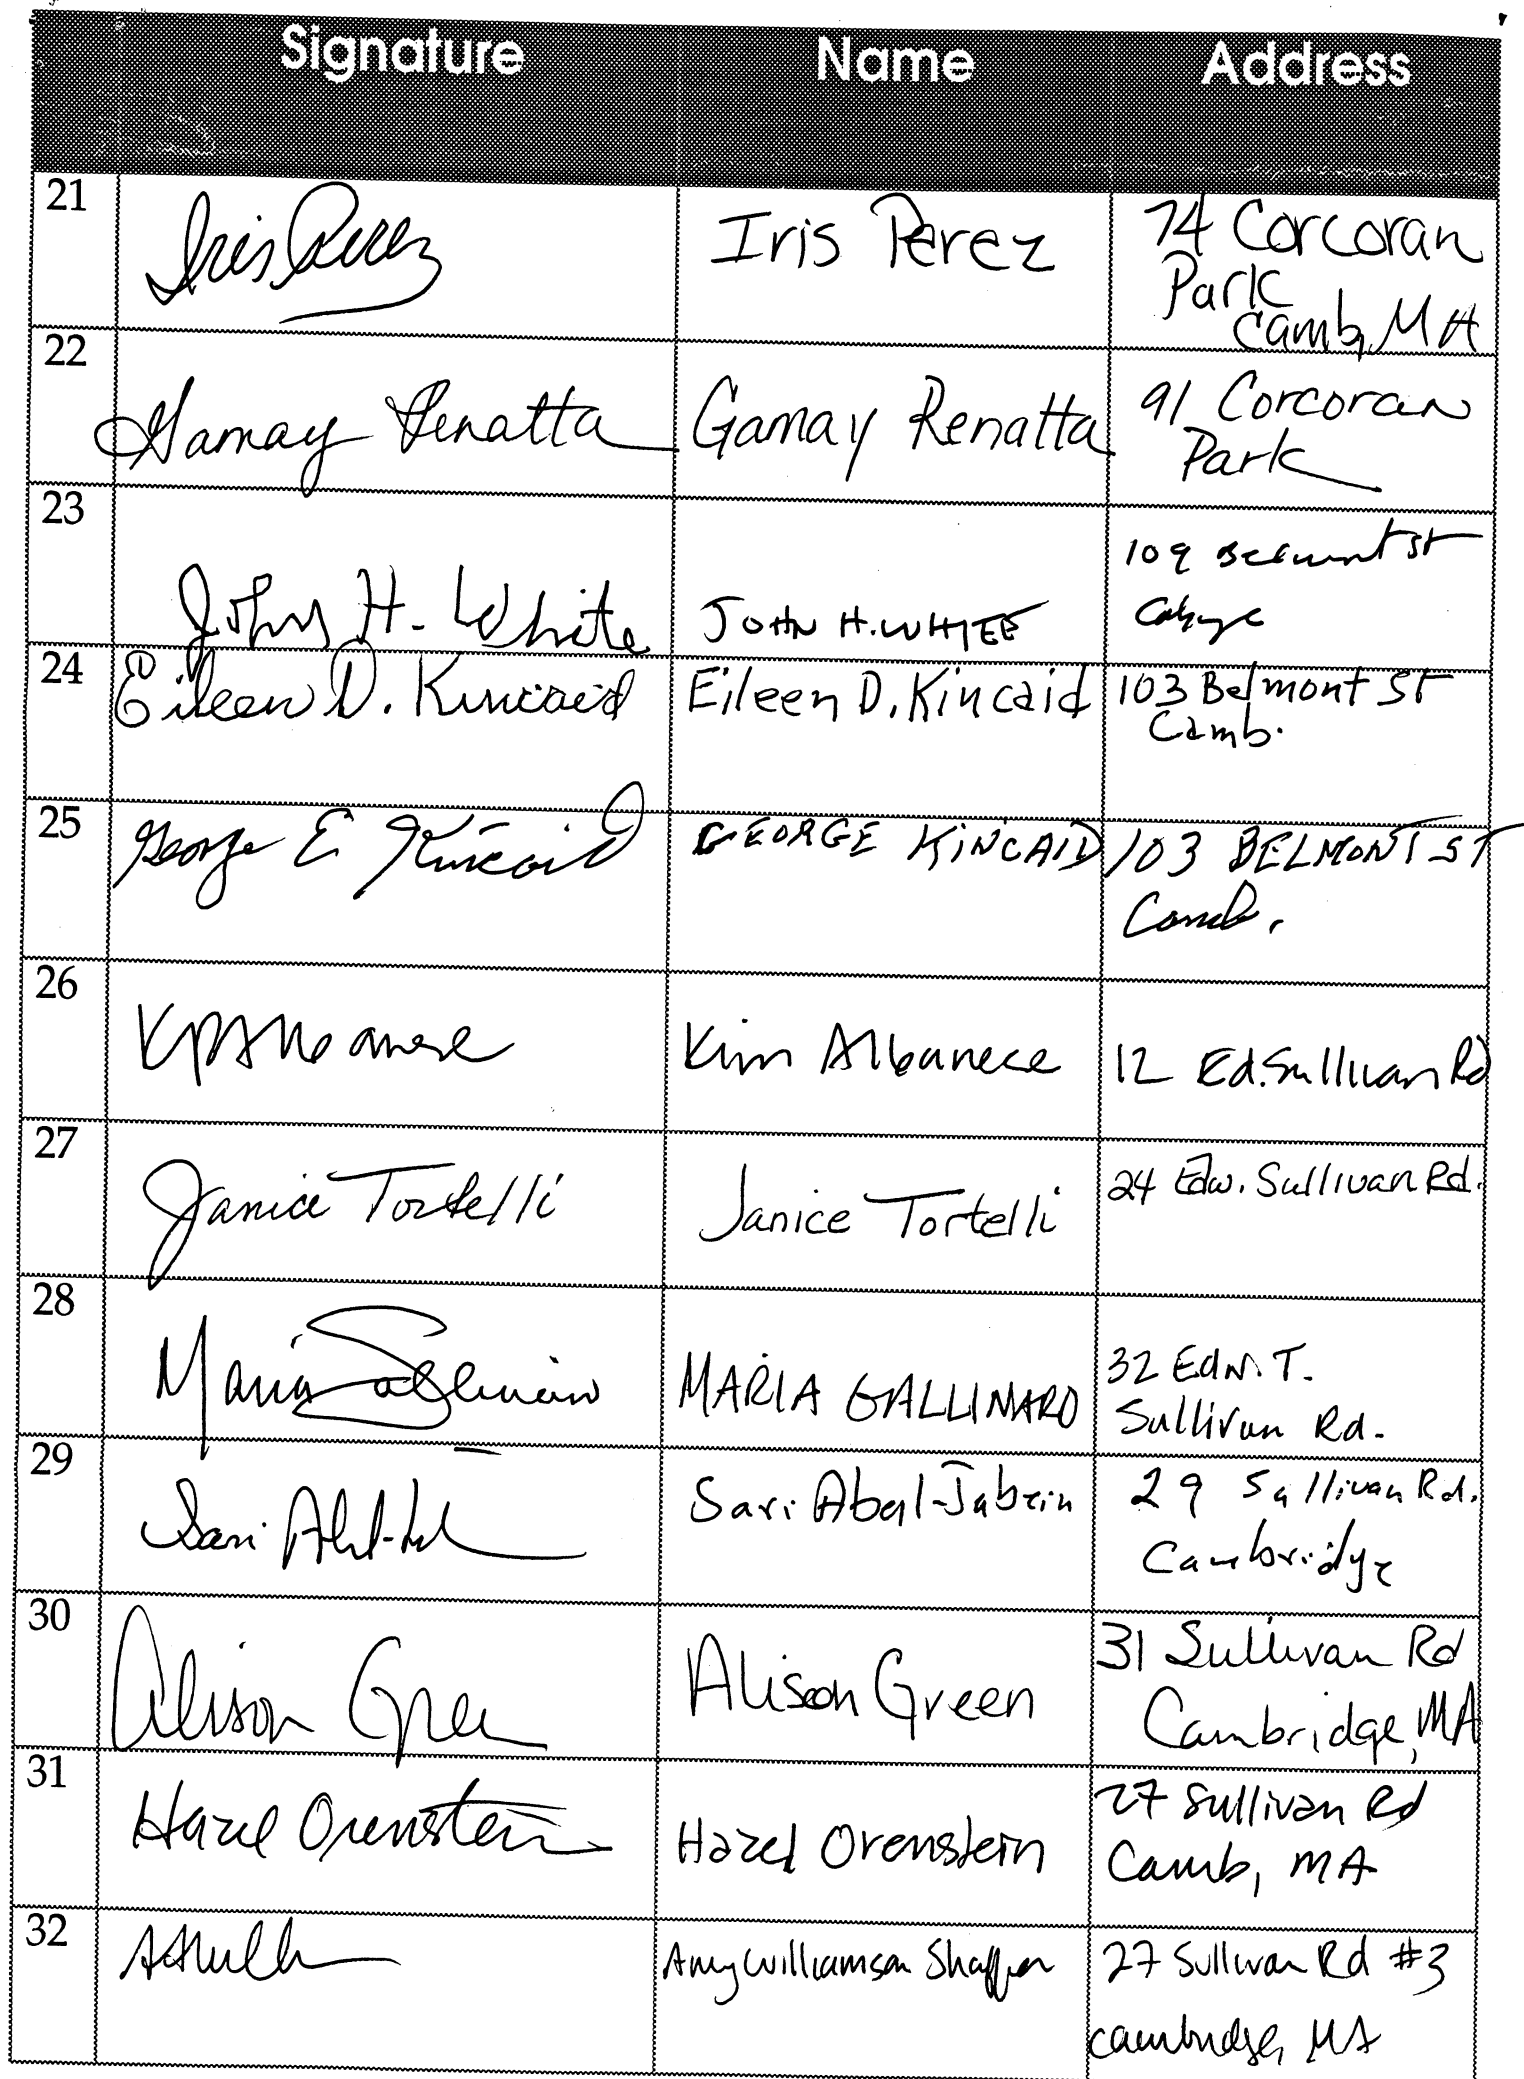 Signature Name Address
21 Iris Perez Iris Perez 74 Corcoran
Park
Camb, MA
22 Gamay Renatta Gamay Renatta 91 Corcoran
Park
23 109 Belmont St
John H. White JOHN H. WHITE
24 Eileen D. Kincaid Eileen D. Kincaid 103 Belmont St
Camb.
25 George E Kincaid GEORGE KINCAID 103 BELMONT ST
Camb.
26 Kim Albanese 12 Ed. Sullivan Rd
27 Janice Tortelli Janice Tortelli 24 Edw. Sullivan Rd.
28 Maria MARIA GALLINARO 32 Edw. T.
Sullivan Rd.
29 Sari Sari Abul-Jubein 29 Sullivan Rd.
Cambridge
30 Alison Green Alison Green 31 Sullivan Rd
Cambridge, MA
31 Hazel Orenstein Hazel Orenstein 27 Sullivan Rd
Camb, MA
32 Amy Williamson Shaffer 27 Sullivan Rd #3
Cambridge, MA